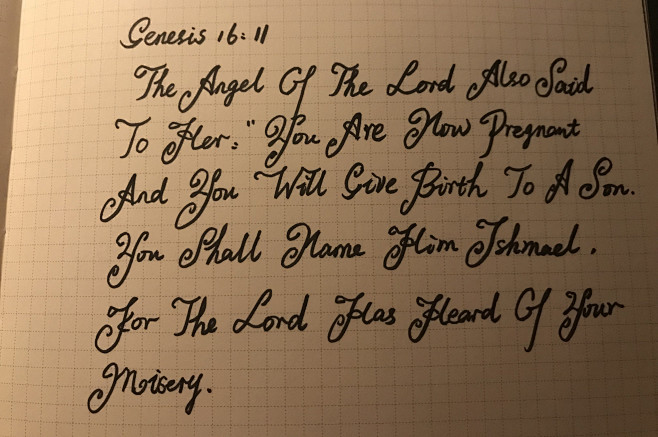 Genesis 16:11
The Angel Of The Lord Also Said
To Her: "You Are Now Pregnant
And You Will Give Birth To A Son.
You Shall Name Him Ishmael.
For The Lord Has Heard Of Your
Misery.